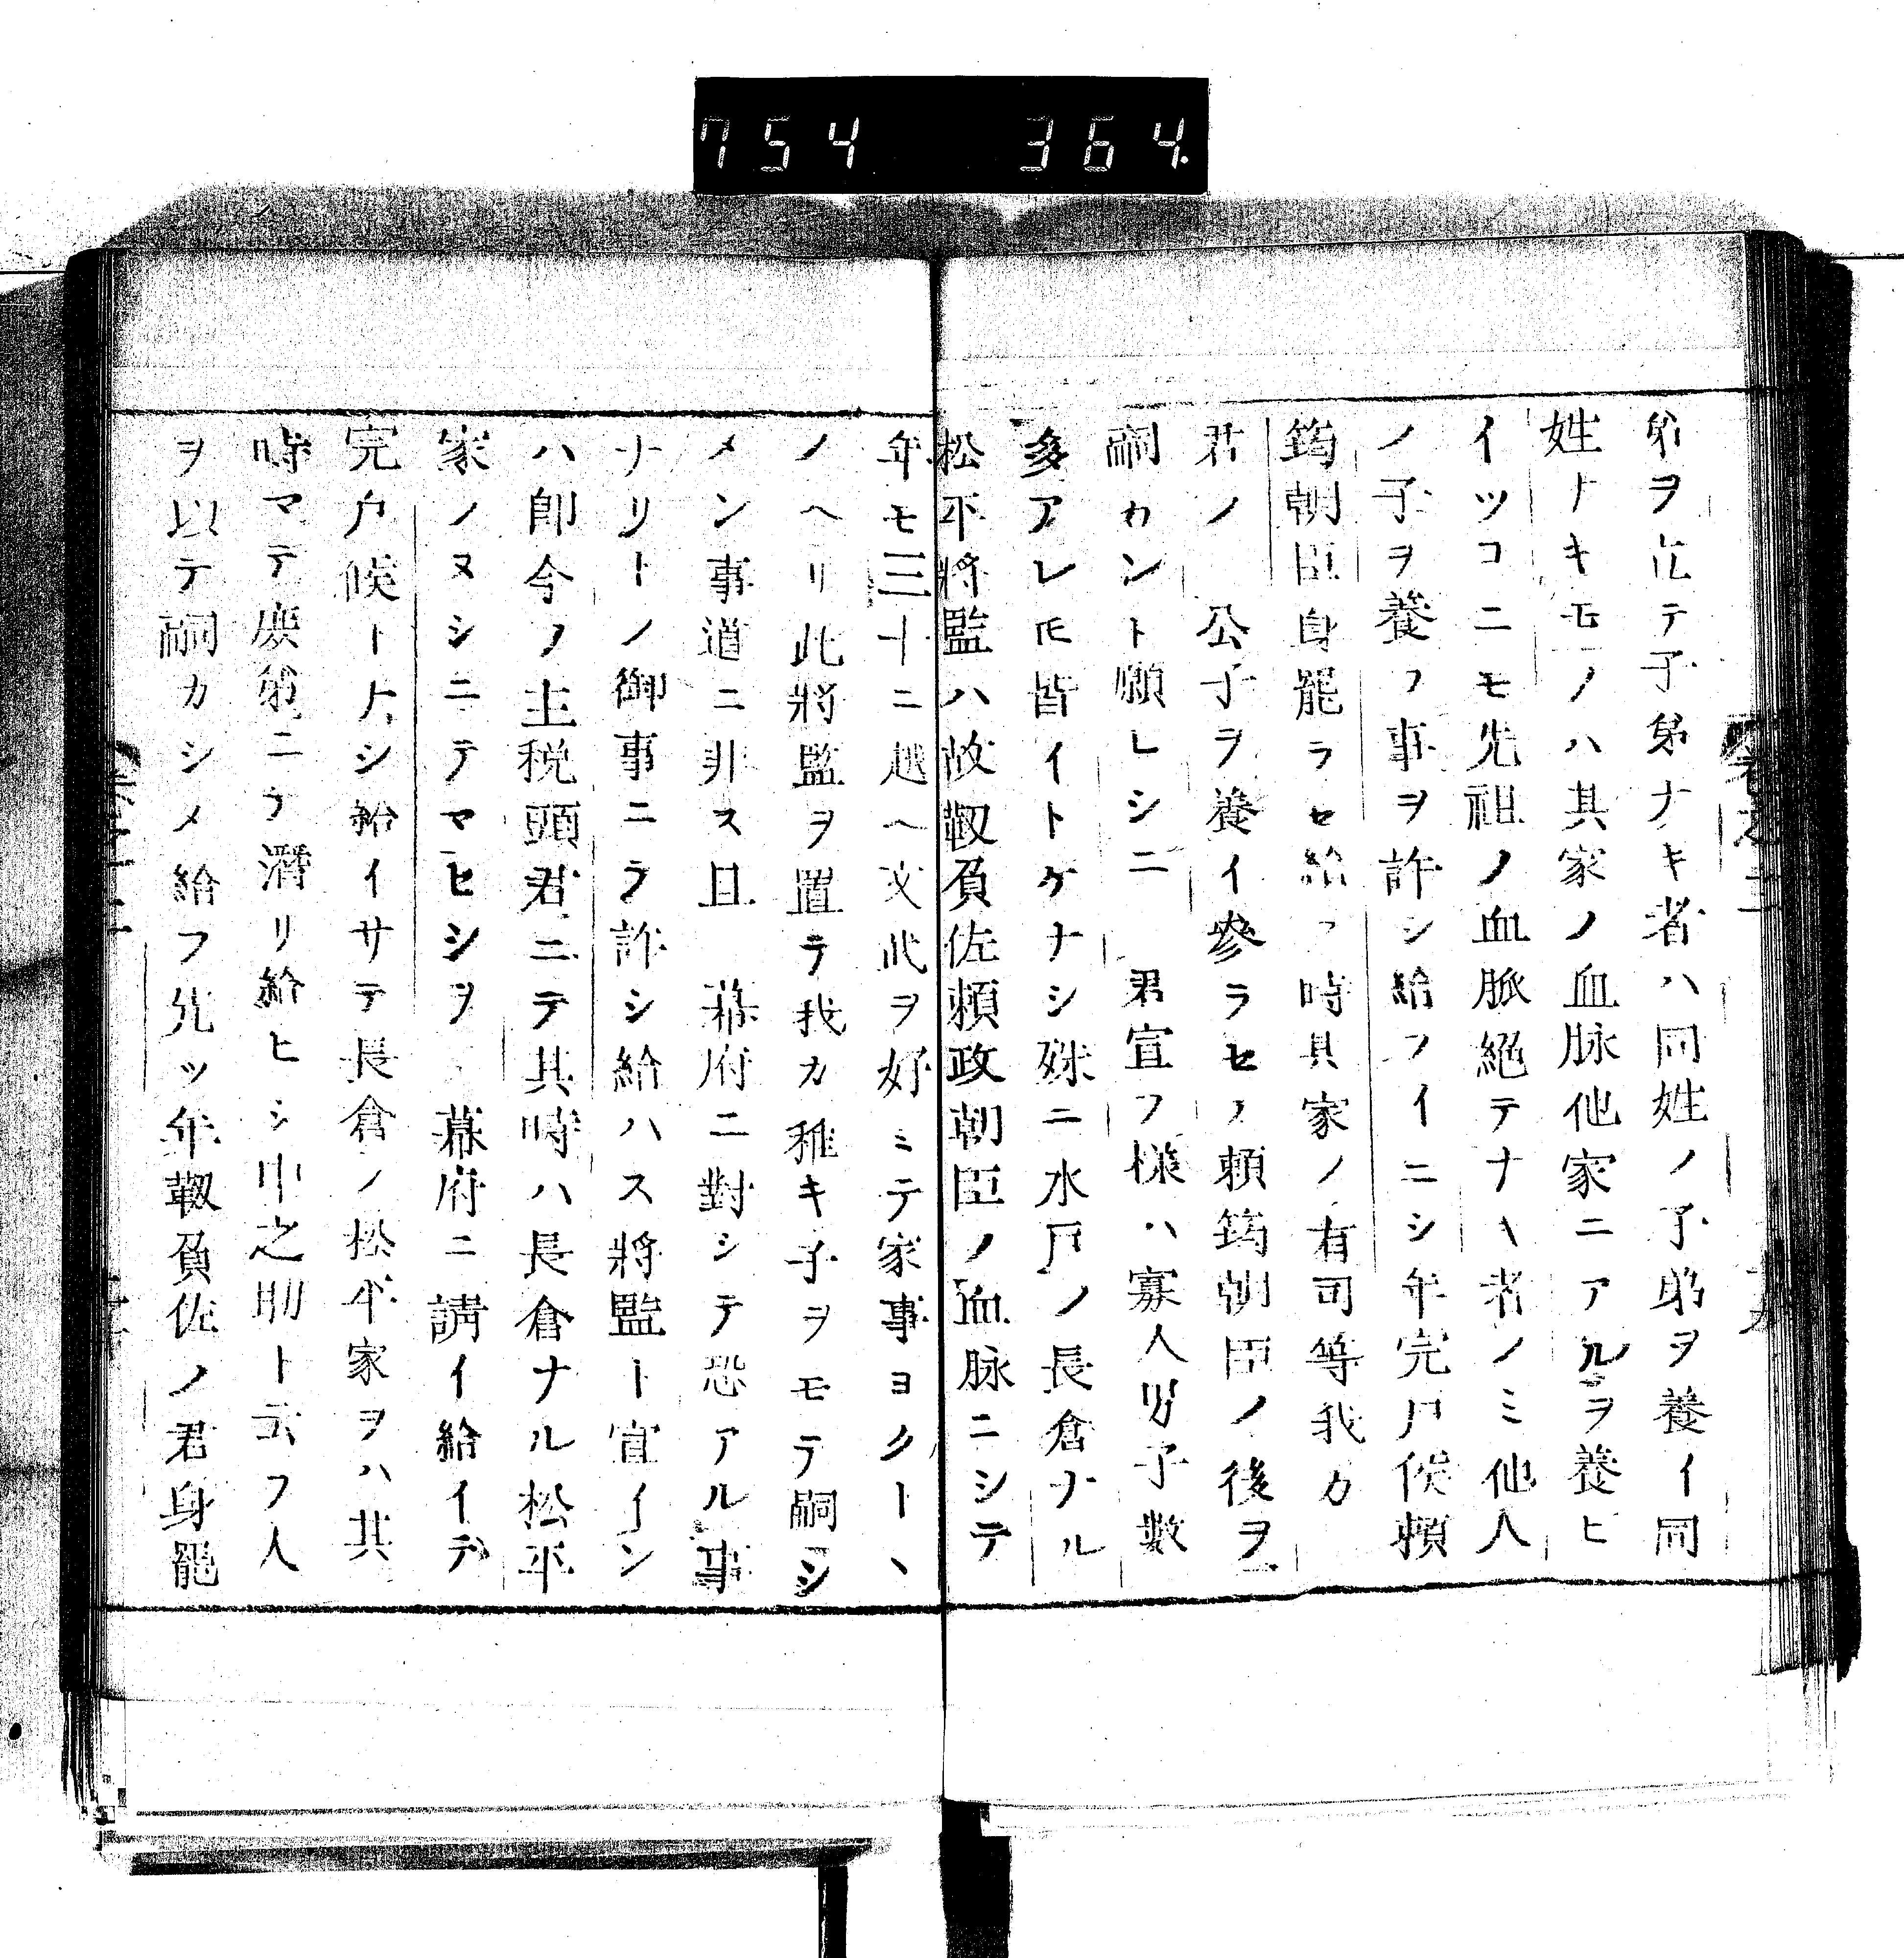 754 364
弟ヲ立テ子弟ナキ者ハ同姓ノ子弟ヲ養イ同
姓ナキモノハ其家ノ血脉他家ニアルヲ養ヒ
イツコニモ先祖ノ血脈絕テナキ者ノミ他人
ノ子ヲ養フ事ヲ許シ給フイニシ年完戸侯頼
筠朝臣身罷ラセ給フ時其家ノ有司等我カ
君ノ 公子ヲ養イ參ラセノ頼筠朝臣ノ後ヲ
嗣カント願レシニ 君宣フ樣ハ寡人男子數
多アレ𪜈皆イトケナシ殊ニ水戸ノ長倉ナル
松平將監ハ故靱負佐頼政朝臣ノ血脉ニシテ
年モ三十ニ越ヘ文武ヲ好ミテ家事ヨクトヽ
ノヘリ此將監ヲ置テ我カ稚キ子ヲモテ嗣シ
メン事道ニ非ス且 幕府ニ對シテ恐アル事
ナリトノ御事ニテ許シ給ハス將監ト宣イン
ハ卽今ノ主税頭君ニテ其時ハ長倉ナル松平
家ノヌシニテマヒシヲ 幕府ニ請イ給イテ
完戸侯トナシ給イサテ長倉ノ松平家ヲハ其
時マテ庶弟ニテ潛リ給ヒシ中之助ト云フ人
ヲ以テ嗣カシメ給フ先ツ年靱負佐ノ君身罷